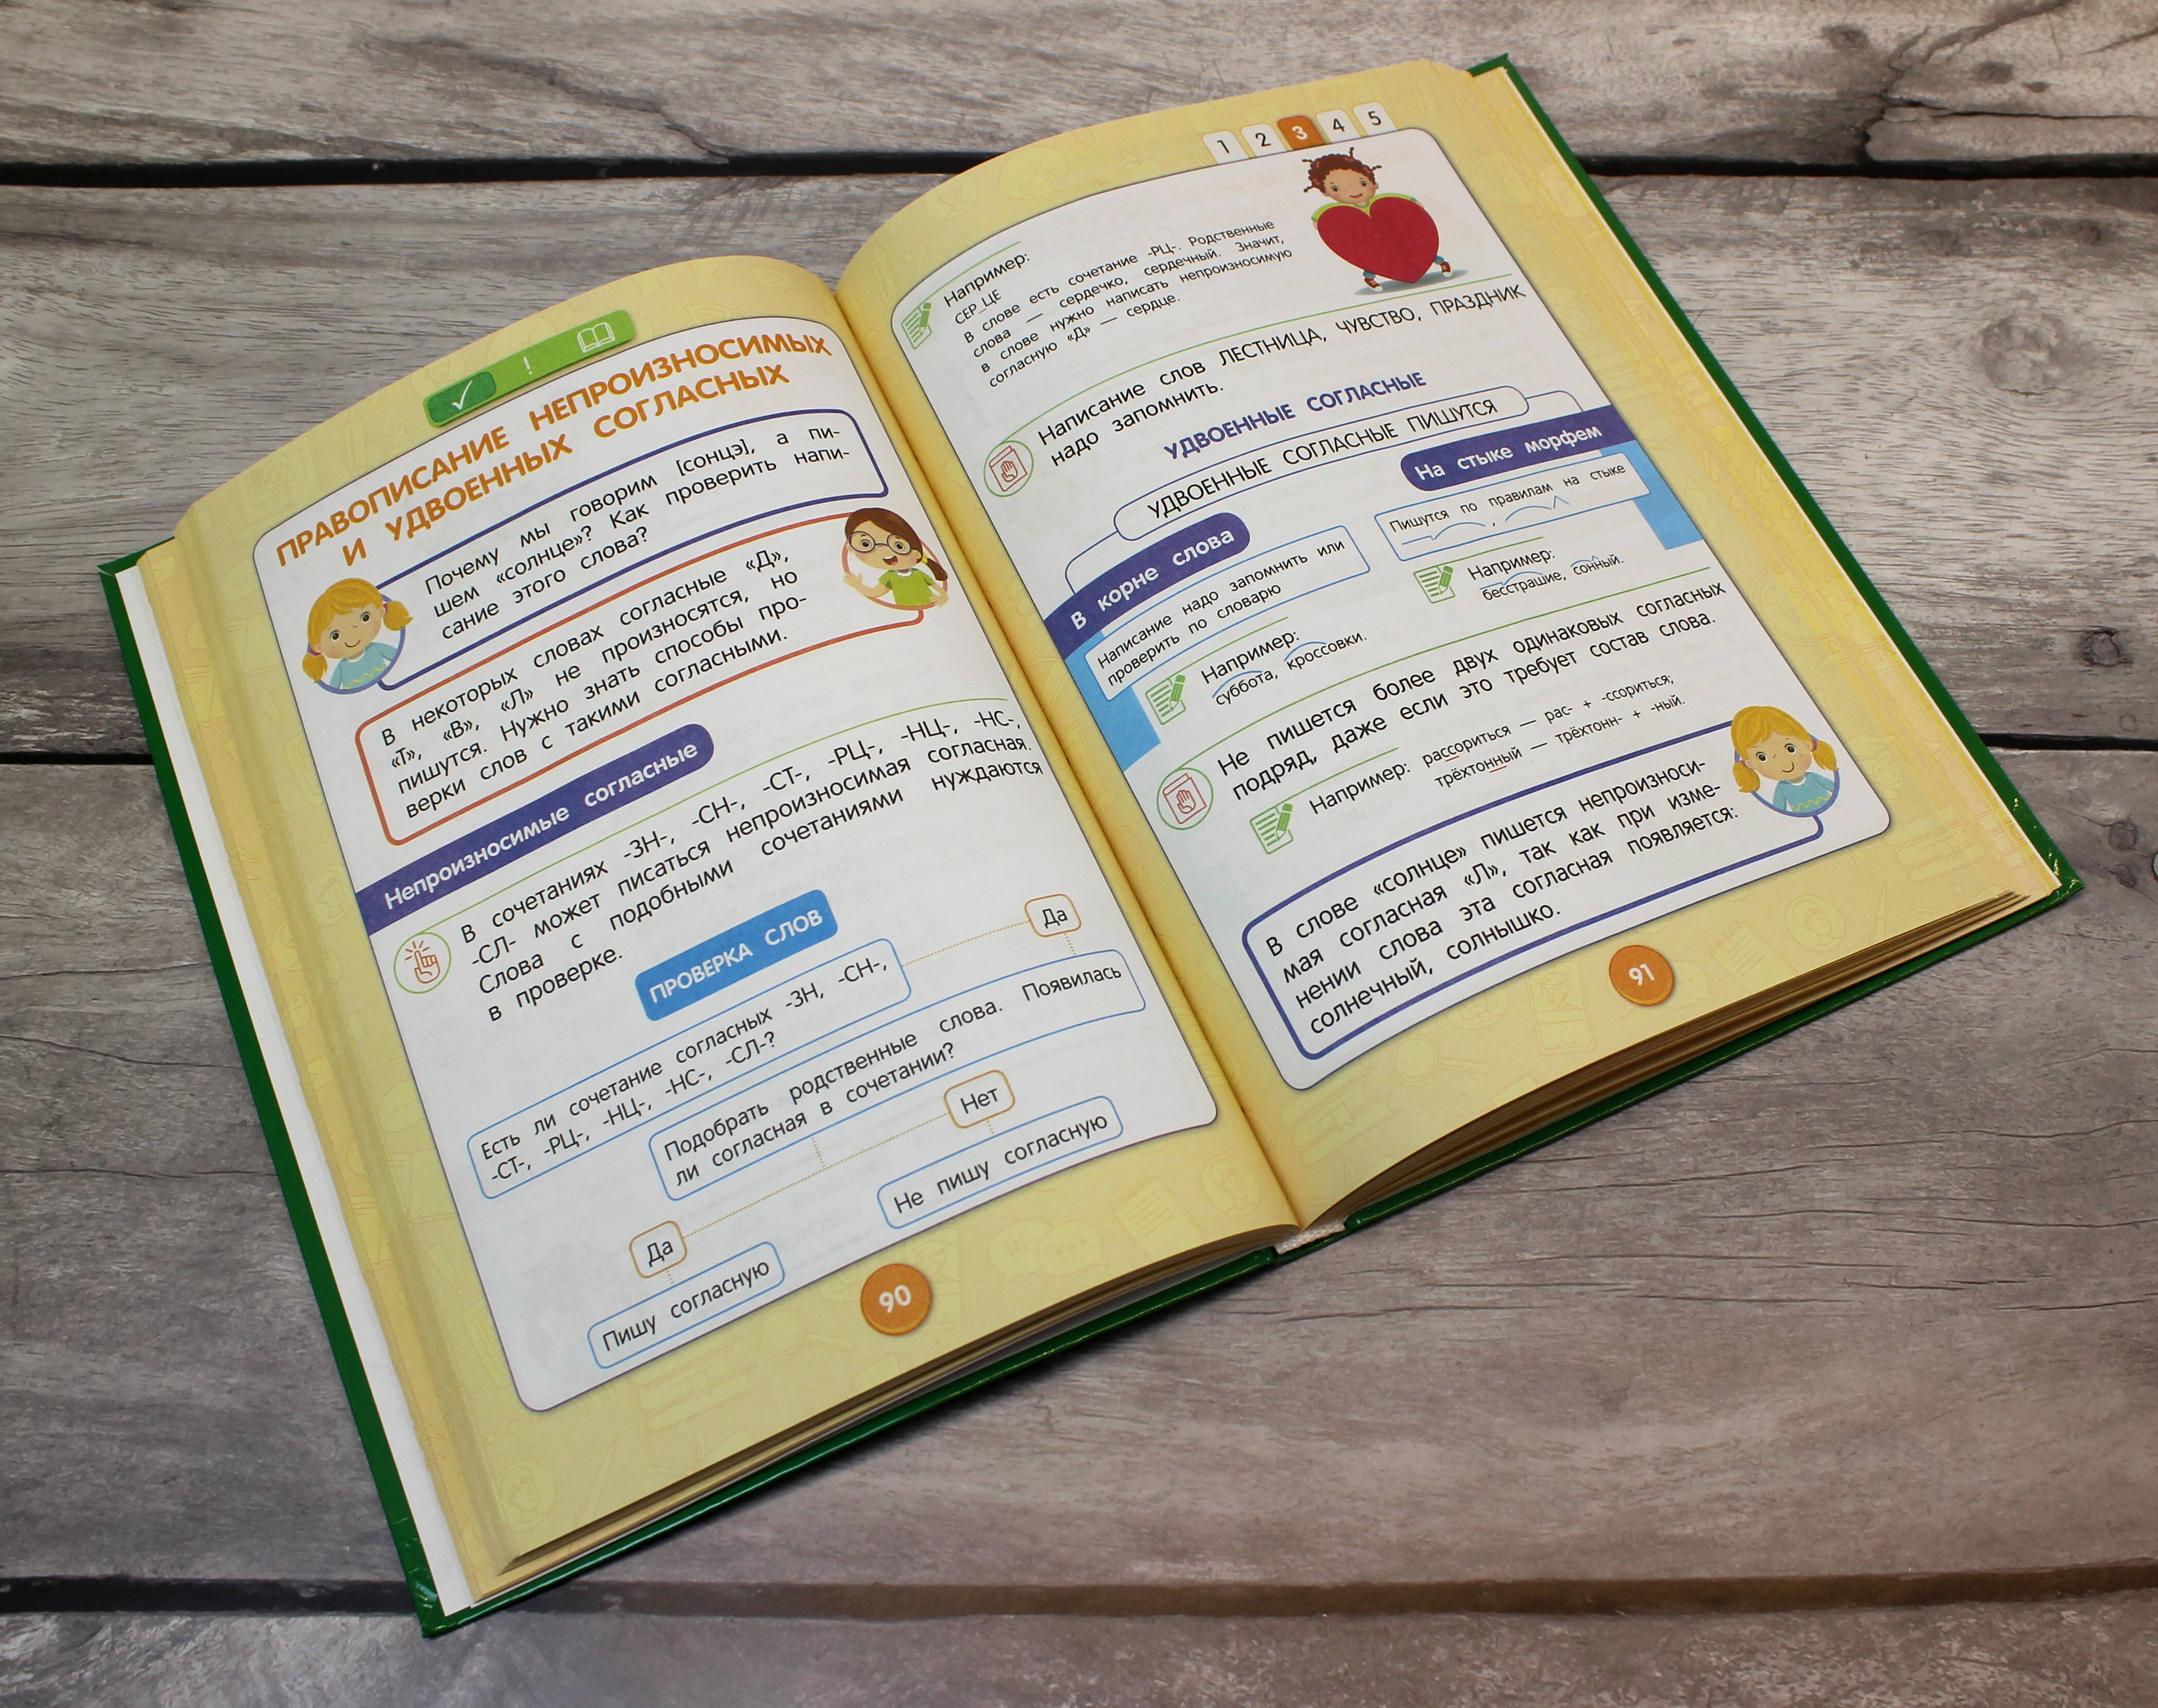 ПРАВОПИСАНИЕ НЕПРОИЗНОСИМЫХ
И УДВОЕННЫХ СОГЛАСНЫХ
Почему мы говорим [сонцэ], а пи-
шем «солнце»? Как проверить напи-
сание этого слова?
В некоторых словах согласные «Д»,
«Т», «В», «Л» не произносятся, но
пишутся. Нужно знать способы про-
верки слов с такими согласными.
Непроизносимые согласные
В сочетаниях -ЗН-, -СН-, -СТ-, -РЦ-, -НЦ-, -НС-,
-СЛ- может писаться непроизносимая согласная.
Слова с подобными сочетаниями нуждаются
в проверке.
ПРОВЕРКА СЛОВ
Есть ли сочетание согласных -ЗН, -СН-,
-СТ-, -РЦ-, -НЦ-, -НС-, -СЛ-?
Да
Подобрать родственные слова. Появилась
ли согласная в сочетании?
Нет
Не пишу согласную
Да
Пишу согласную
90
1 2 3 4 5
Например:
СЕР_ЦЕ
В слове есть сочетание -РЦ-. Родственные
слова — сердечко, сердечный. Значит,
в слове нужно написать непроизносимую
согласную «Д» — сердце.
Написание слов ЛЕСТНИЦА, ЧУВСТВО, ПРАЗДНИК
надо запомнить.
УДВОЕННЫЕ СОГЛАСНЫЕ
УДВОЕННЫЕ СОГЛАСНЫЕ ПИШУТСЯ
В корне слова
Написание надо запомнить или
проверить по словарю
Например:
суббота, кроссовки.
На стыке морфем
Пишутся по правилам на стыке
,
Например:
бесстрашие, сонный.
Не пишется более двух одинаковых согласных
подряд, даже если это требует состав слова.
Например: рассориться — рас- + -ссориться;
трёхтонный — трёхтонн- + -ный.
В слове «солнце» пишется непроизноси-
мая согласная «Л», так как при изме-
нении слова эта согласная появляется:
солнечный, солнышко.
91